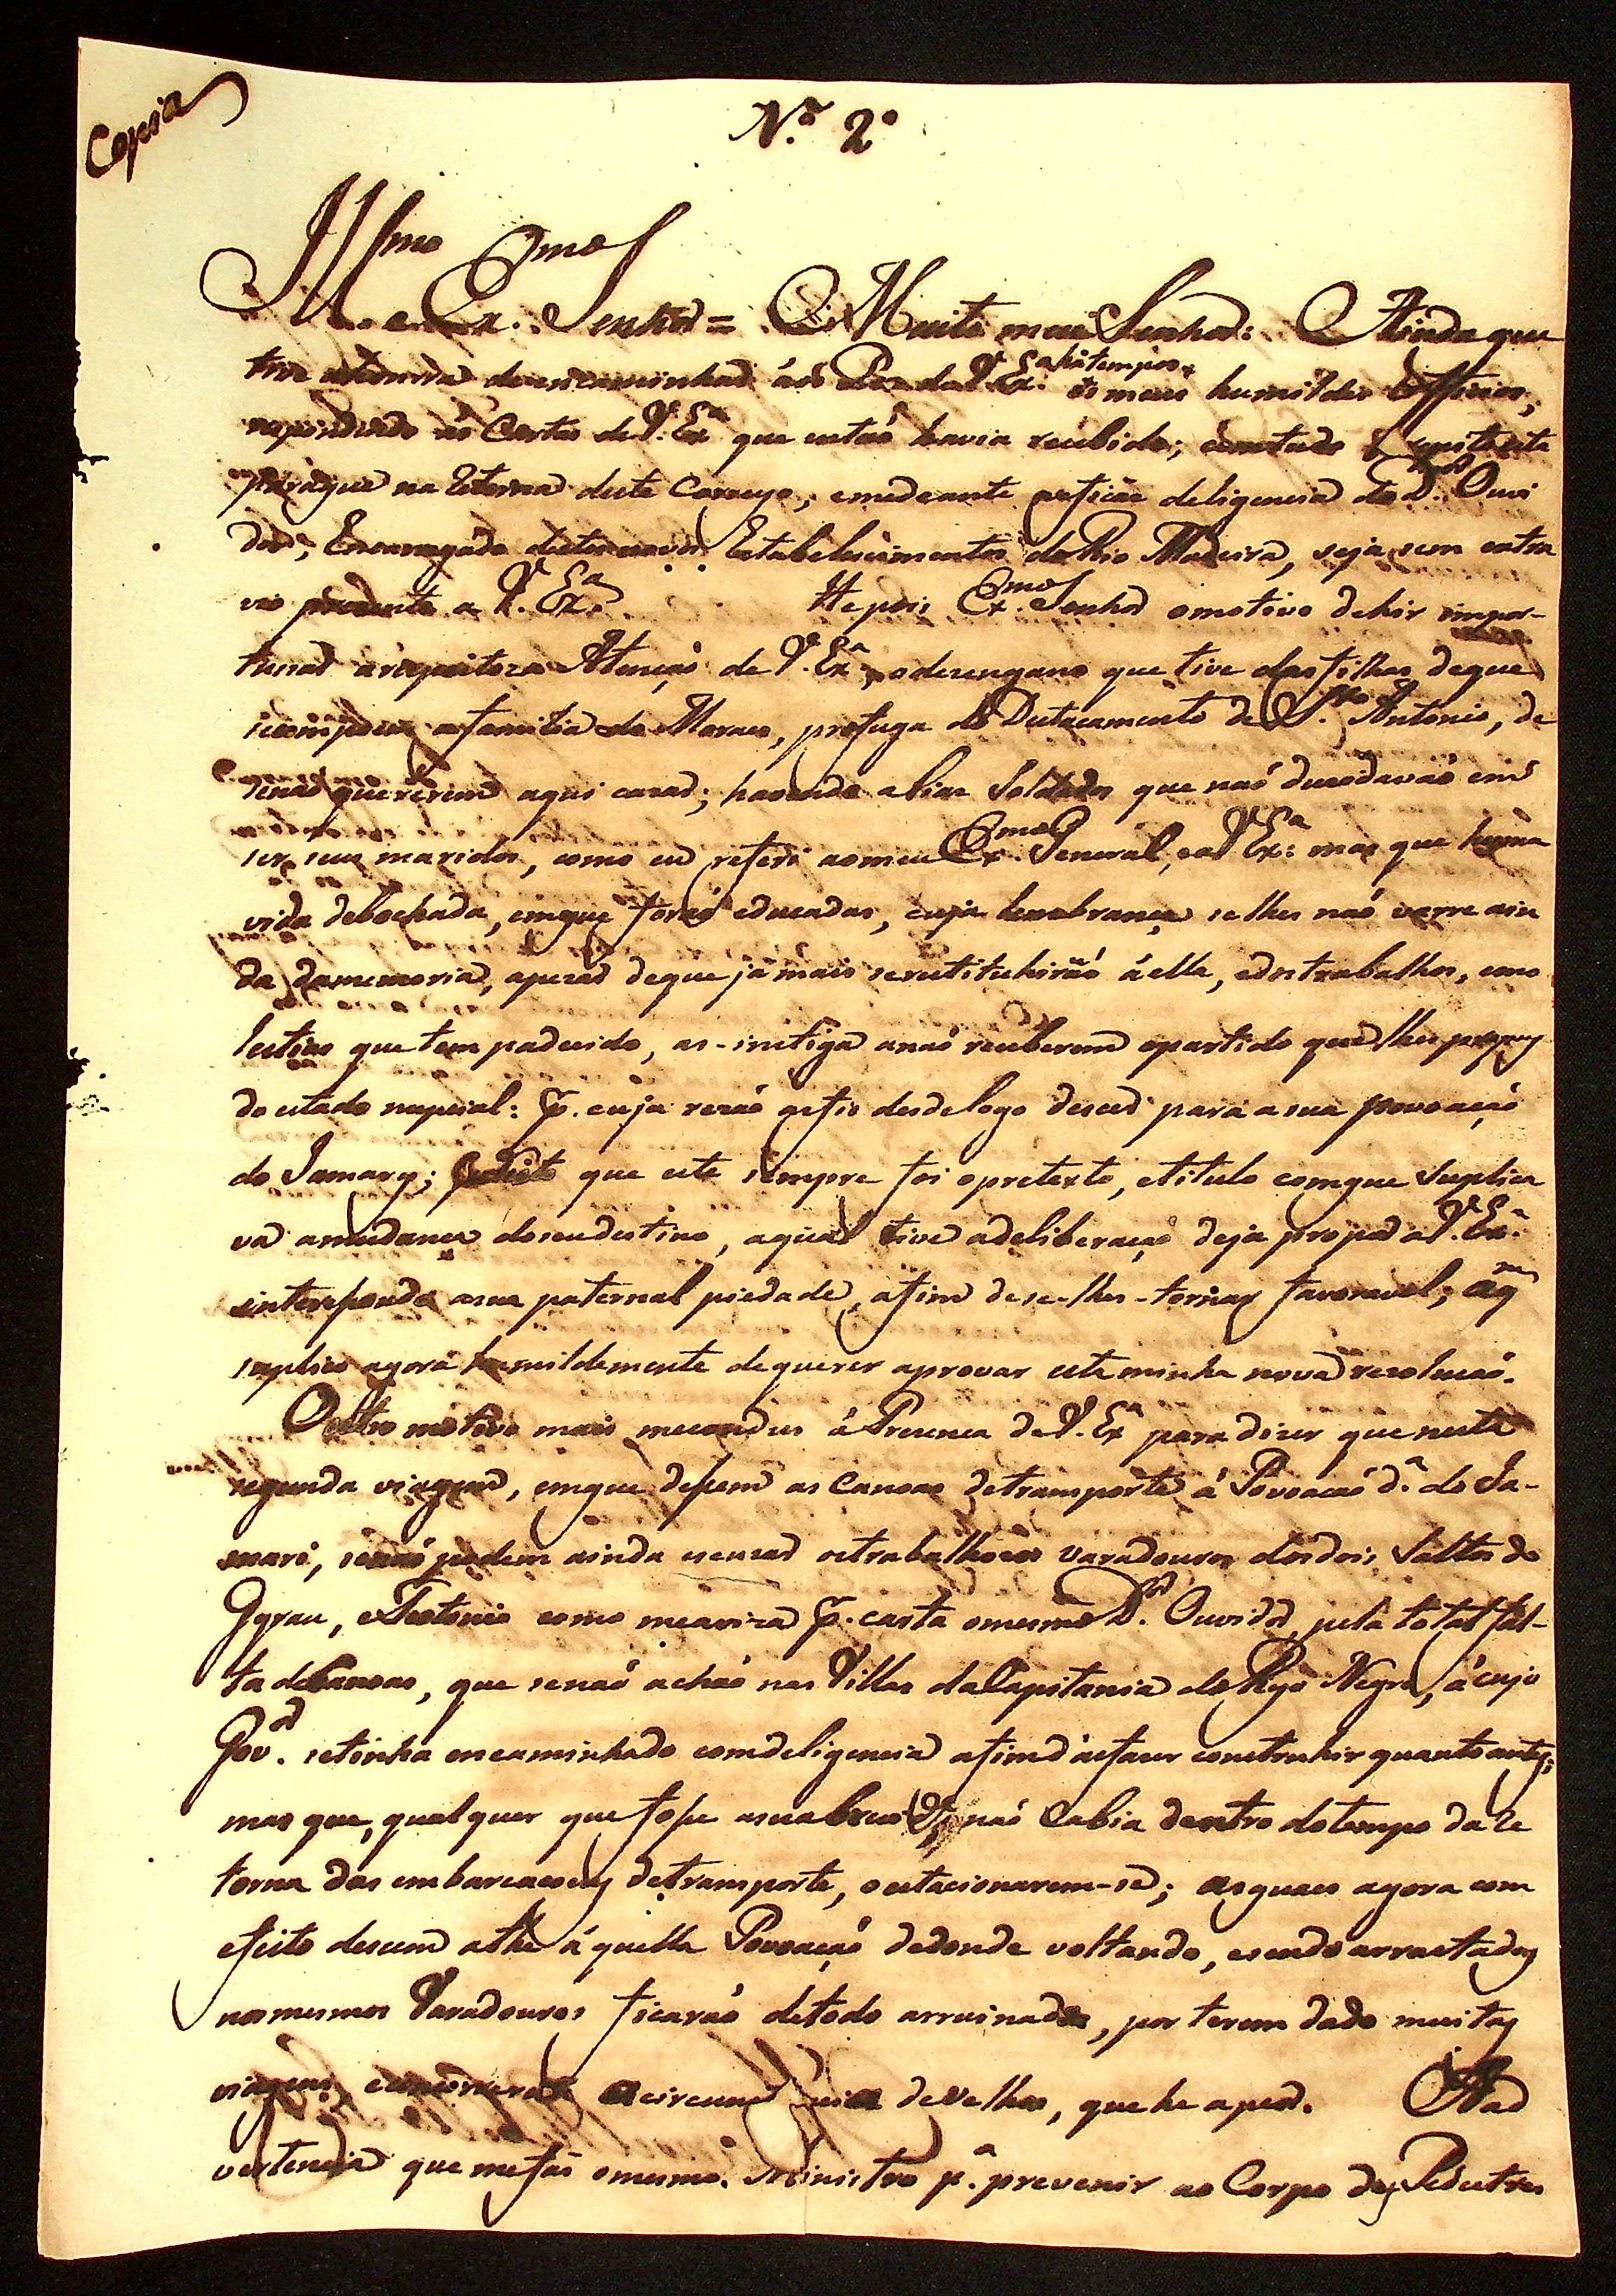 Copia
N.º 2º
Ill.mo e Ex.mo Senhor = Muito meu Senhor: Ainda que
tive a honra de encaminhar aós Pés de V. Ex.a há tempos os meus humildes Officios,
respondendo ás Cartas de V. Ex.a que entaõ havia recebido; comtudo
para que na retorna deste Correyo, e mediante deligencia do D.or Ouvi
dor, Encarregado Estabelecimentos do Rio Madeira, seja sem extra
vio prezente a V. Ex.a He pois Ex.mo Senhor o motivo de hir impor-
tunar a respeitoza Atençaõ de V. Ex.a, o dezengano que tive das filhas de que
se compoem a familia do Moraes, profuga do Destacamento de S.to Antonio, de
se naõ quererem aqui cazar; havendo alias Soldados que naõ duvidavaõ em
ser seus maridos, como eu referi ao meu Ex.mo General, e a V. Ex.a: mas que huma
vida debochada, em que foraõ educadas, cuja lembrança se lhes naõ varre ain
da da memoria, apezar de que já mais se restituhiráõ á ella, e dos trabalhos, e mo
lestias que tem padecido, as-instiga a naõ receberem o partido que lhes propuz
do estado nupcial: p. cuja rezaõ as fis desde logo descer para a sua Povoaçaõ
do Jamary; que este sempre foi o pretexto, e titulo com que suplica
va a mudança do seu destino, a qual tive a deliberaçaõ de ja propor a V. Ex.a
interponda a sua paternal piedade, a fim de se-lhes-tornar favoravel; a q.m
suplico agora humildemente de querer aprovar esta minha nova rezoluçaõ.
Outro motivo mais me conduz á Prezença de V. Ex.a para dizer que nesta
segunda viagem, em que desem as Canoas de transporte á Povoaçaõ d.a do Ja-
mari, se naõ podem ainda escuzar os trabalhozos Varadouros dos dois Saltos do
Gyrau, e Teotonio como me aviza p. carta o mesmo D.or Ouvidor, pela total fal-
ta de Canoas, que se naõ achaõ nas Villas da Capitania do Ryo Negro, á cujo
Gov.or se tinha encaminhado com deligencia a fim d'as fazer construhir quanto antes;
mas que, qualquer que fosse a sua brevid.e, naõ cabia dentro do tempo da re
torna das embarcaçoens de transporte, o estacionarem-se; as quaes agora com
efeito descem athe áquella Povoaçaõ de donde voltando, e sendo arrastadas
nos mesmos Varadouros ficaráõ de todo arruinadas, por terem dado muitas
viagens, e concorrer a circunstancia de velhas, que he a peor. A ad
vertencia que me fas o mesmo Ministro p.a prevenir ao Corpo de Pedestres